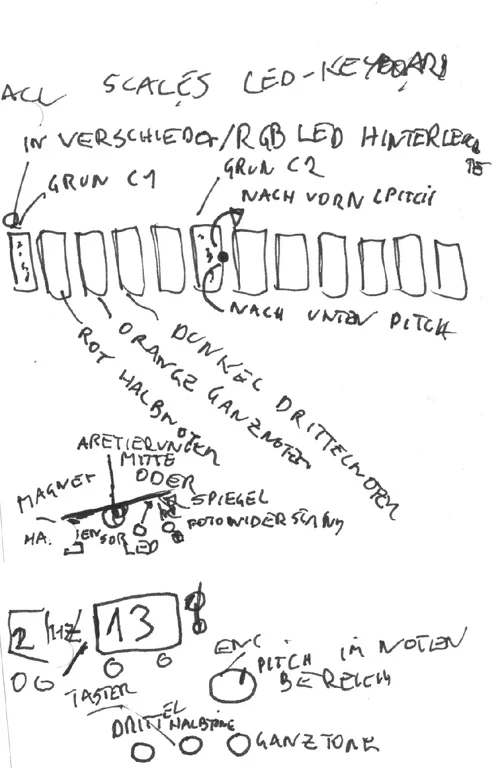 ALL SCALES LED-KEYBOARD
IN VERSCHIEDEN/RGB LED HINTERLEGTE
GRUN C1
GRUN C2
NACH VORN PITCH
NACH UNTEN PITCH
DUNKEL DRITTELNOTEN
ORANGE GANZNOTEN
ROT HALBNOTEN
ARETIERUNGEN
MITTE
ODER
MAGNET
SPIEGEL
FOTOWIDERSTAND
HA. SENSOR LED
2 HZ 13
ENC
PITCH IM NOTEN
BEREICH
TASTER
DRITTEL
HALBTÖNE
GANZTONE